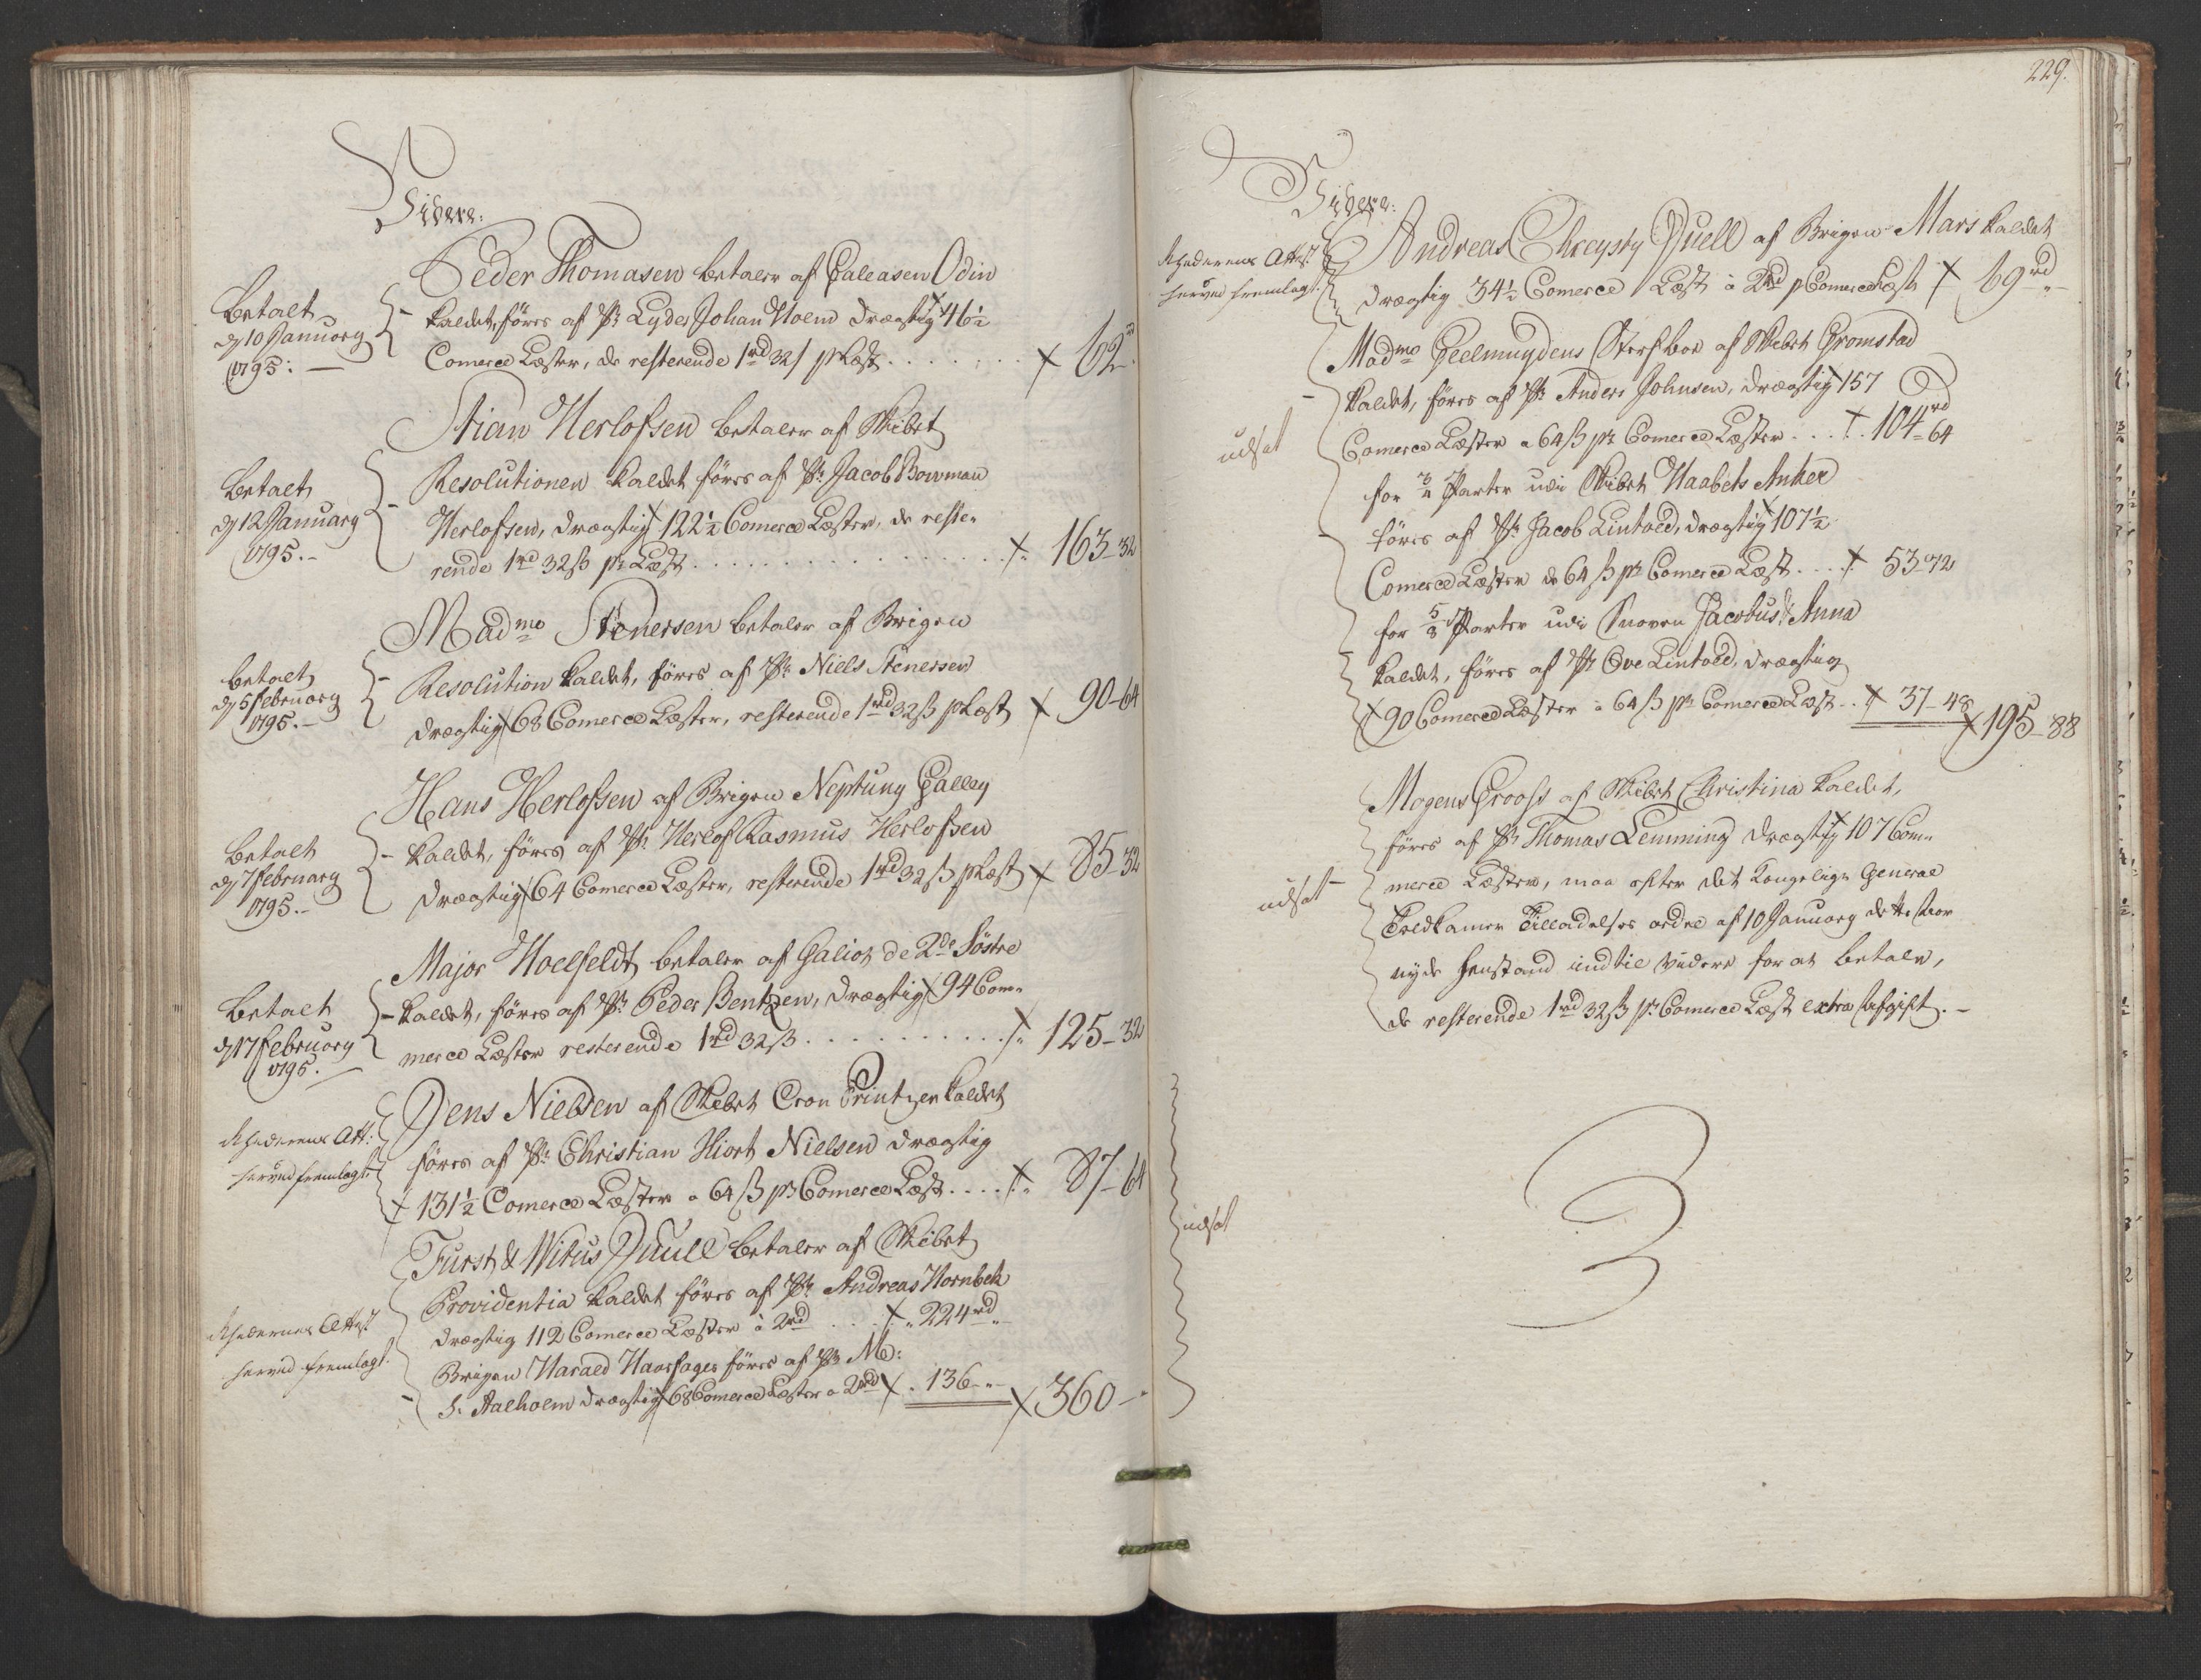 Videre:
Peder Thomasen betaler af Galeasen Odin
Betalt
d 10 January
1795: —
kaldet, føres af Sr Lyder Johan Holm drægtig 46½
Comerce Læster, de resterende 1rd 32s pLæst . . . . . . 62
Stian Herlofsen betaler af Skibet
Betalt
d 12 January
1795.–
Resolutionen kaldet føres af Sr Jacob Bowman
Herlofsen, drægtig 122½ Comerce Læster, de reste-
rende 1rd 32ß pr Læst . . . . . . . . . . 163–32
Madme Stenersen betaler af Brigen
betalt
d 5 February
1795.–
Resolution kaldet, føres af Sr Niels Stenersen
drægtig 68 Comerce Læster, resterende 1rd 32ß pLæst 90–64
Hans Herlofsen af Brigen Neptuny Galley
Betalt
d 7 February
1795.–
kaldet, føres af Sr Herlof Rasmus Herlofsen
drægtig 64 Comerce Læster, resterende 1rd 32ß pLæst 85–32
Major Hoelfeldt betaler af Galiot de 2de Søstre
Betalt
d 17 February
1795.
kaldet, føres af Sr Peder Bentzen, drægtig 94 Com-
merce Læster resterende 1rd 32ß . . . . . . . . . 125–32
Jens Nielsen af Skibet Cron Printzen kaldet
Rhederens Att:
herved fremlagt
føres af Sr Christian Hiort Nielsen drægtig
131½ Comerce Læster a 64ß pr Comerce Læst . . . . 87–64
Furst & Witus Juull betaler af Skibet
Providentia kaldet føres af Sr Andreas Hornbek
Rhedernes Attest
herved fremlagt.
drægtig 112 Comerce Læster à 2rd . . . 224rd
Brigen Harald Haarfager føres af Sr M:
S. Aalholm drægtig 68 Comerce Læster a 2rd . 136–"– 360–"
229.
Videre:
Andreas Chrysty Juell af Brigen Mars kaldet
Rhederens Attest
herved fremlagt.
drægtig 34½ Comerce Læst à 2rd pComerce Læst 69rd"
Madme Geelmuydens Sterfboe af Skibet Gromstad
kaldet, føres af Sr Anders Johnsen, drægtig 157
udsat
Comerce Læster a 64ß pr Comerce Læster . . . 104rd–64
for ¾ Parter udi Skibet Haabets Anker
føres af Sr Jacob Lintoed, drægtig 107½
Comerce Læster de 64ß pr Comerce Læst . . . 53–72
for 5/8 Parter udi Snoven Jacobus & Anna
kaldet, føres af Sr Ove Lintoed, drægtig
90 Comerce Læster à 64ß pr Comerce Læst . . 37–48
195–88
Mogens Grooss af Skibet Christina kaldet,
føres af Sr Thomas Lemming drægtig 107 Com-
udsat –
merce Læster, maa efter det Kongelige General
Toldkamer Tilladelses ordre af 10 January dette Aar
nyde henstand indtil videre for at betale,
de resterende 1rd 32ß pr Comerce Læst extra Afgift. –
udsat